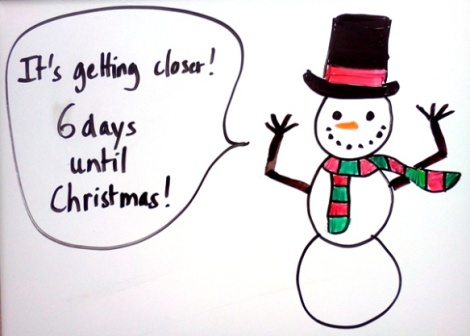 It's getting closer!
6 days
until
Christmas!